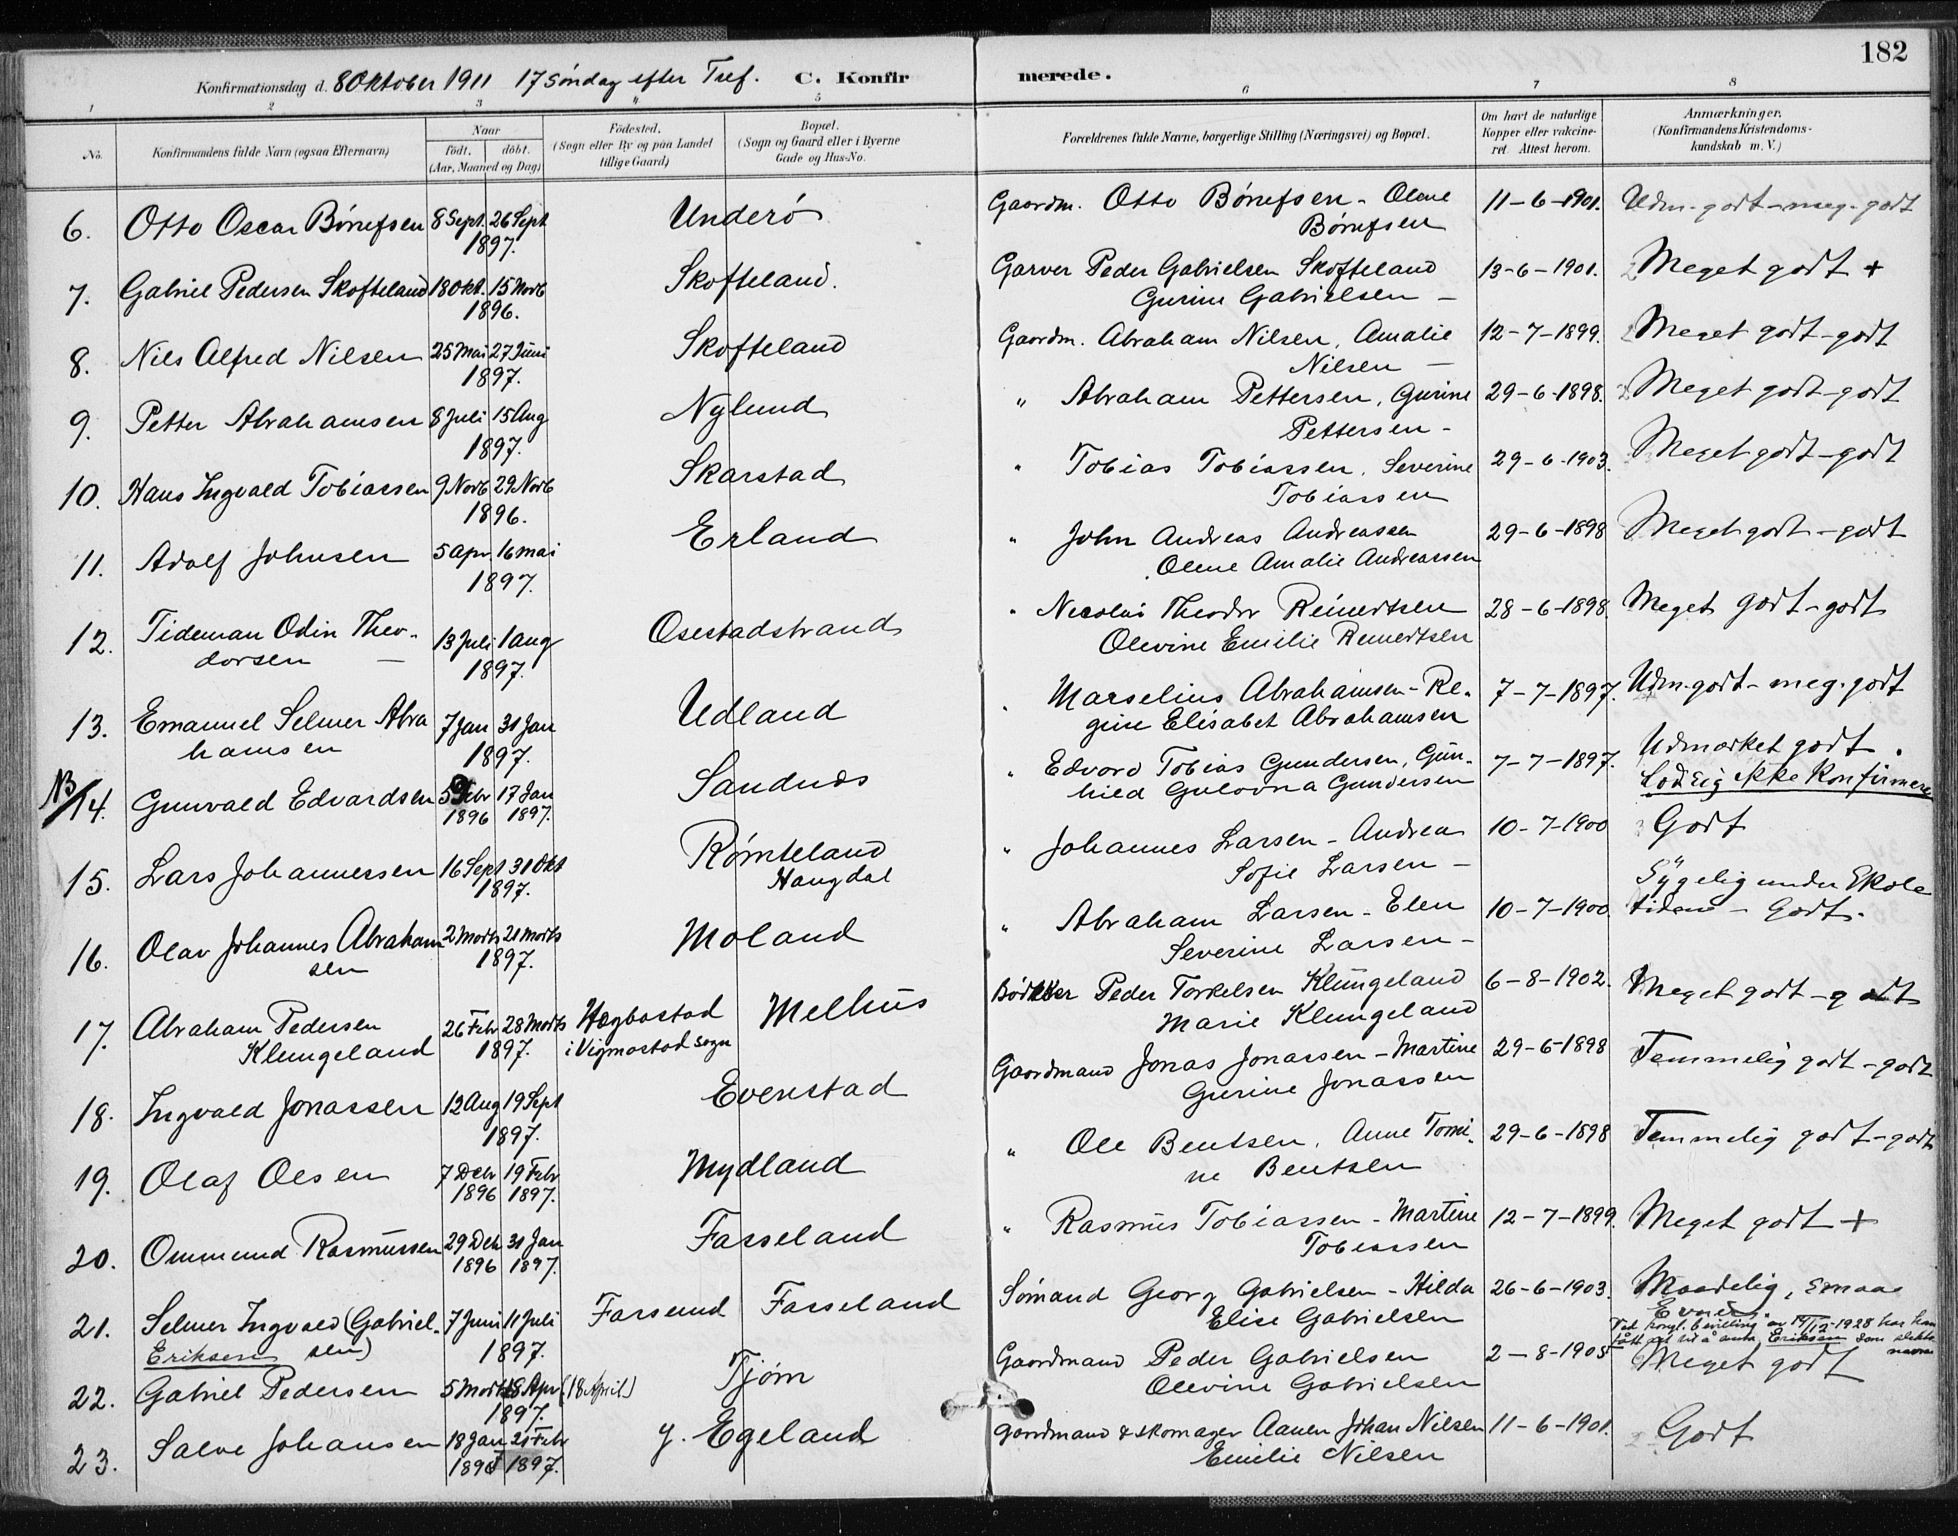 182
Konfirmationsdag d. 8 Oktober 1911 17 Søndag efter Tref. C. Konfirmerede.
1 2 3 4 5 6 7 8
No. Konfirmandens fulde Navn (ogsaa Efternavn) Naar født, døbt. (Aar, Maaned og Dag) Fødested. (Sogn eller By og paa Landet tillige Gaard) Bopæl. (Sogn og Gaard eller i Byerne Gade og Hus-No. Forældrenes fulde Navne, borgerlige Stilling (Næringsvei) og Bopæl. Om havt de naturlige Kopper eller vaccineret. Attest herom. Anmærkninger. (Konfirmandens Kristendomskundskab m. V.)
6. Otto Oscar Børufsen 8 Sept. 26 Sept 1897. Underø Gaardm. Otto Børufsen - Olene 11-6-1901. Udm. godt - meg. godt
Børufsen
7. Gabriel Pedersen Skofteland 18 Okt. 15 Novb 1896. Skofteland. Garver Peder Gabrielsen Skofteland 13-6-1901. Meget godt +
Gurine Gabrielsen -
8. Nils Alfred Nilsen 25 Mai 27 Juni 1897. Skofteland Gaardm. Abraham Nilsen, Amalie 12-7-1899. Meget godt - godt
Nilsen -
9. Petter Abrahamsen 8 Juli 15 Aug 1897. Nylund " Abraham Pettersen, Gurine 29-6-1898. Meget godt - godt
Pettersen -
10. Hans Ingvald Tobiassen 9 Novb 29 Novb 1896. Skarstad " Tobias Tobiassen, Severine 29-6-1903. Meget godt - godt
Tobiassen
11. Adolf Johnsen 5 Apr 16 Mai 1897. Erland " John Andreas Andreassen 29-6-1898 Meget godt - godt
Olene Amalie Andreassen
12. Tideman Odin Theo- 13 Juli 1 Aug 1897. Osestadstrand " Nicolai Theodor Reinertsen 28-6-1898. Meget godt - godt
dorsen - Olevine Emilie Reinertsen
13. Emanuel Selmer Abra 7 Jan 31 Jan 1897. Udland " Marselius Abrahamsen - Re- 7-7-1897. Udm. godt - meg. godt
hamsen gine Elisabet Abrahamsen
NB 14. Gunvald Edvardsen 5 Febr 1896 17 Jan 1897. Sandnæs " Edvard Tobias Gundersen, Gun- 7-7-1897. Udmærket godt.
hild Gulovna Gundersen Lod sig ikke konfirmere
15. Lars Johannessen 16 Sept 31 Okt 1897. Rømteland " Johannes Larsen - Andrea 10-7-1900 Godt
Haugdal Sofie Larsen -
16. Olav Johannes Abraham 2 Marts 21 Marts 1897. Moland " Abraham Larsen - Elen 10-7-1900. Sygelig under Skole
sen Severine Larsen - tiden - Godt.
17. Abraham Pedersen 26 Febr 28 Marts 1897. Hægbostad Melhus Bødker Peder Torkelsen Klungeland 6-8-1902. Meget godt - godt
Klungeland i Vigmostad sogn Marie Klungeland
18. Ingvald Jonassen 12 Aug 19 Sept 1897. Evenstad Gaardmand Jonas Jonassen - Martine 29-6-1898 Temmelig godt - godt
Gurine Jonassen
19. Olaf Olsen 7 Debr 1896 19 Febr 1897. Mydland " Ole Bentsen, Anne Tomi- 29-6-1898 Temmelig godt - godt
ne Bentsen
20. Ommund Rasmussen 29 Deb 1896 31 Jan 1897. Fasseland " Rasmus Tobiassen - Martine 12-7-1899. Meget godt +
Tobiassen
21. Selmer Ingvald (Gabriel- 7 Juni 11 Juli 1897. Farsund Fasseland Sømand Georg Gabrielsen - Hilda 26-6-1903. Maadelig, smaa
Eriksen sen) Elise Gabrielsen Evner.
Ved kongl. bevilling av 19/12-1928 har han
fått ret til å anta Eriksen som slekts
navn
22. Gabriel Pedersen 5 Marts 18 Apr (18 April) 1897. Tjøm Gaardmand Peder Gabrielsen 2-8-1905 Meget godt
Olevine Gabrielsen
23. Salve Johansen 18 Jan 1896 21 Febr 1897. y. Egeland Gaardmand & skomager Aanen Johan Nilsen 11-6-1901. Godt
Emilie Nilsen